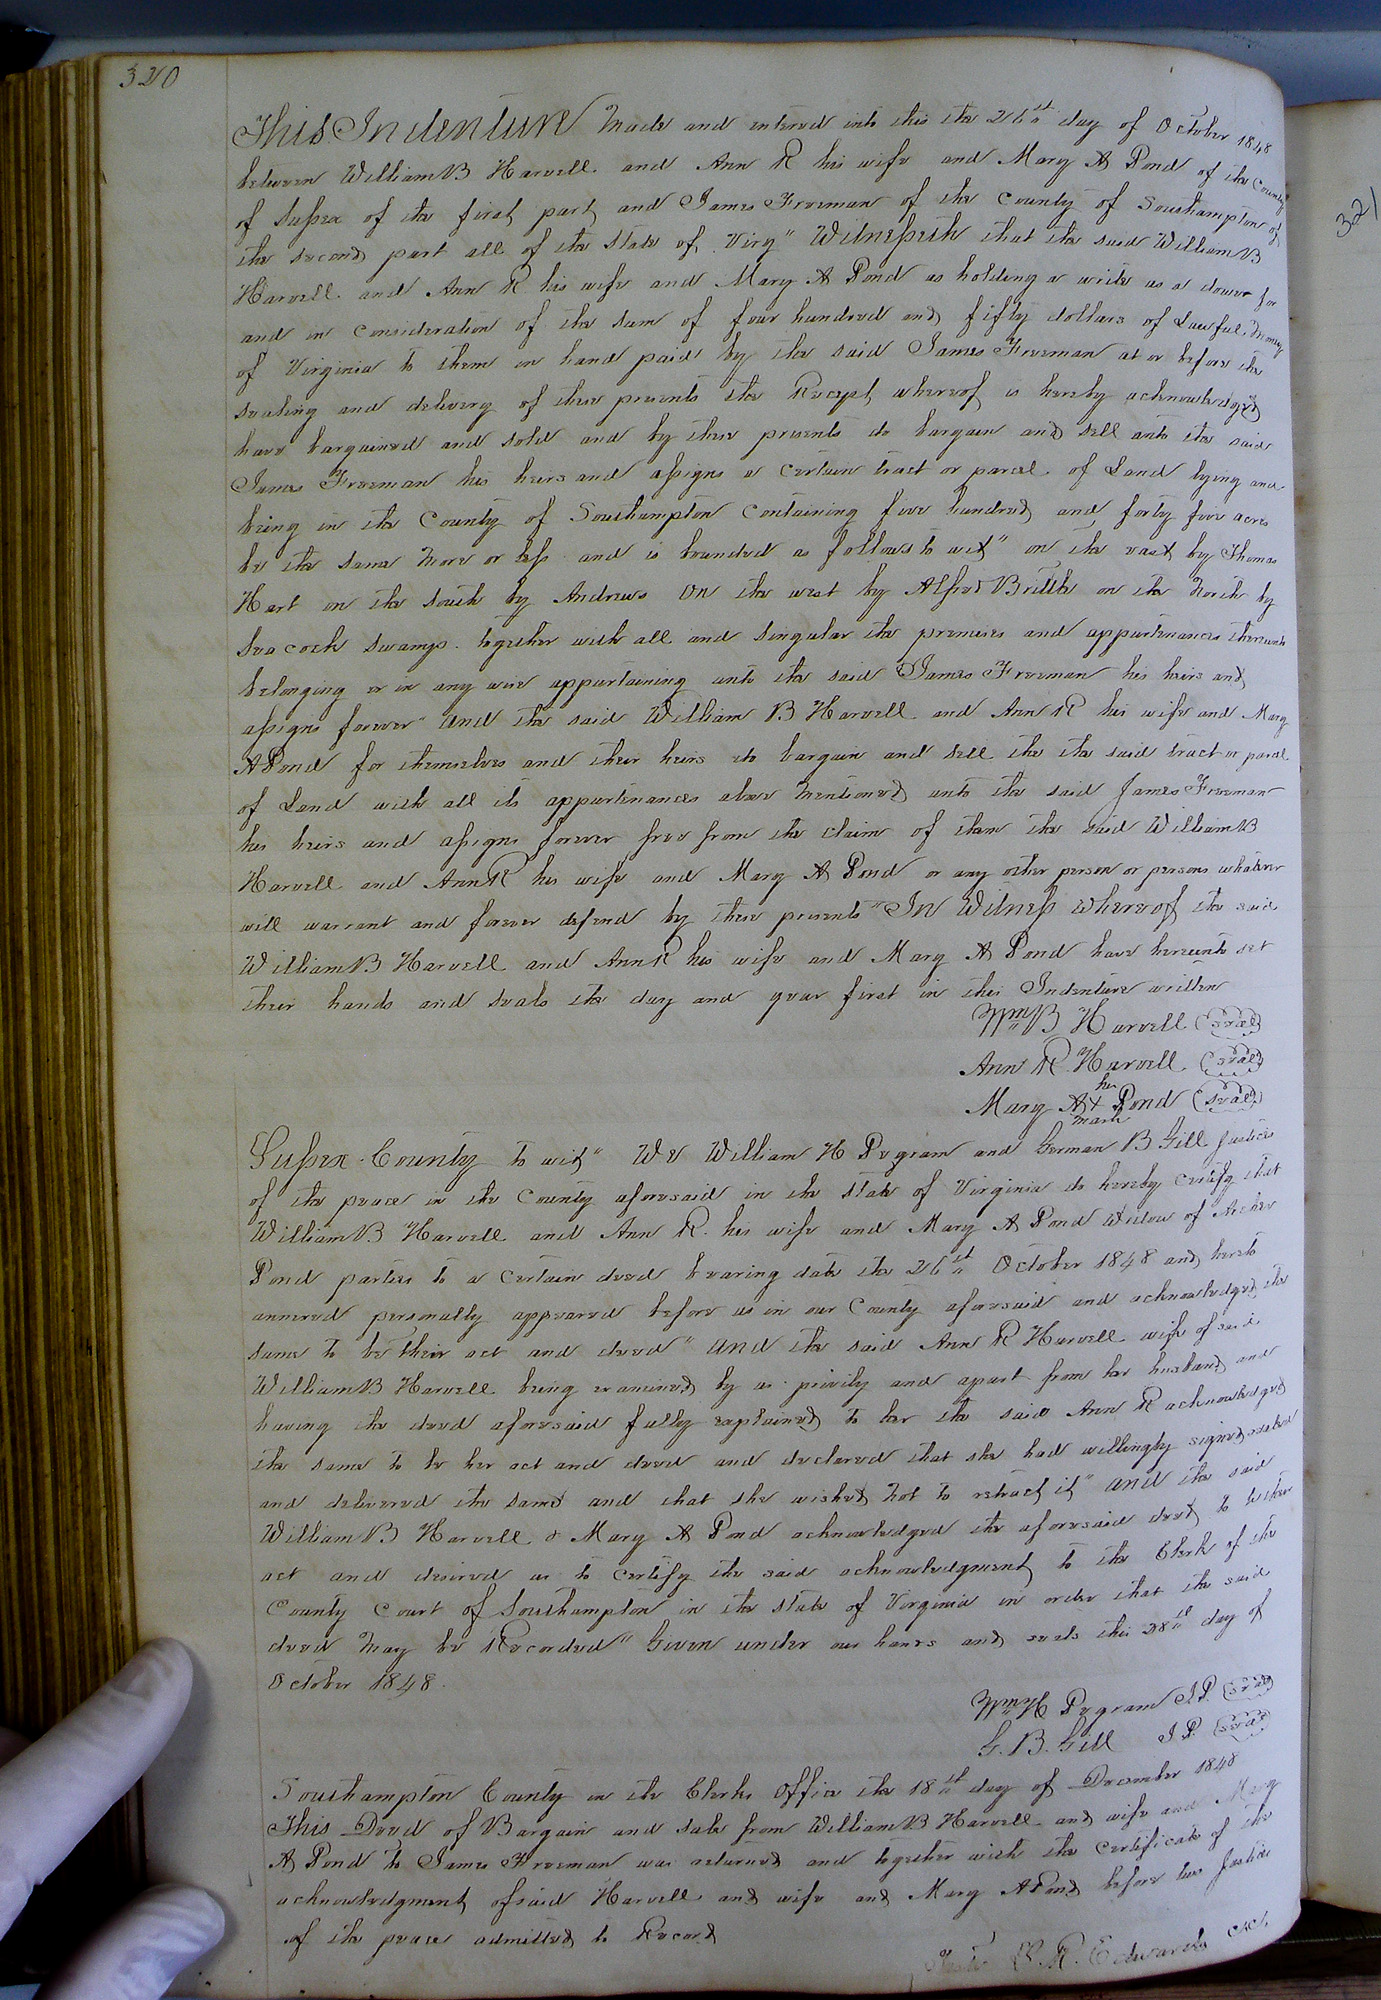 320
This Indenture Made and entered into this the 26th day of October 1848
between William B Harvell and Ann R his wife and Mary A Pond of the County
of Sussex of the first part and James Freeman of the County of Southampton of
the second part all of the state of Virg" Witnesseth that the said William B
Harvell and Ann R his wife and Mary A Pond as holding a write as a dower for
and in consideration of the sum of four hundred and fifty dollars of Lawful money
of Virginia to them in hand paid by the said James Freeman at or before the
sealing and delivery of these presents the Recept whereof is hereby acknowledged
have bargained and sold and by these presents do bargain and sell unto the said
James Freeman his heirs and assigns a certain tract or parcel of Land lying and
being in the County of Southampton Containing five hundred and forty five acres
be the same More or less and is bounded as follows to wit" on the east by Thomas
Hart on the South by Andrews on the west by Alfred Brittle on the North by
Seacock swamp. together with all and singular the premises and appurtenances thereunto
belonging or in any wise appertaining unto the said James Freeman his heirs and
assigns forever" And the said William B Harvell and Ann R his wife and Mary
A Pond for themselves and their heirs do bargain and sell the the said tract or parcel
of Land with all its appurtinances above Mentioned unto the said James Freeman
his heirs and assigns forever free from the claim of them the said William B
Harvell and Ann R his wife and Mary A Pond or any other person or persons whatever
will warrant and forever defend by these presents" In Witness whereof the said
William B Harvell and Ann R his wife and Mary A Pond have hereunto set
their hands and seals the day and year first in this Indenture written
Wm B Harvell (seal)
Ann R Harvell (seal)
her
Mary A X Pond (seal)
mark
Sussex County to wit" We William H Pegram and German B Gill Justices
of the peace in the County aforesaid in the state of Virginia do hereby certify that
William B Harvell and Ann R. his wife and Mary A Pond Widow of Archer
Pond parties to a certain deed bearing date the 26th October 1848 and hereto
annexed personally appeared before us in our County aforesaid and acknowledged the
same to be their act and deed" And the said Ann R Harvell wife of said
William B Harvell being examined by us privily and apart from her husband and
having the deed aforesaid fully explained to her the said Ann R acknowledged
the same to be her act and deed and declared that she had willingly signed sealed
and delivered the same and that she wished not to retract it" And the said
William B Harvell & Mary A Pond acknowledged the aforesaid deed to be their
act and desired us to certify the said acknowledgment to the Clerk of the
County Court of Southampton in the state of Virginia in order that the said
deed May be Recorded" Given under our hands and seals this 28th day of
October 1848.
Wm H Pegram J.P. (seal)
G. B. Gill J.P. (seal)
Southampton County in the Clerks Office the 18th day of December 1848
This Deed of Bargain and sale from William B Harvell and wife and Mary
A Pond to James Freeman was returned and together with the certificate of the
acknowledgment of said Harvell and wife and Mary A Pond before two Justices
of the peace admitted to Record
Teste L. R. Edwards CSC.
321